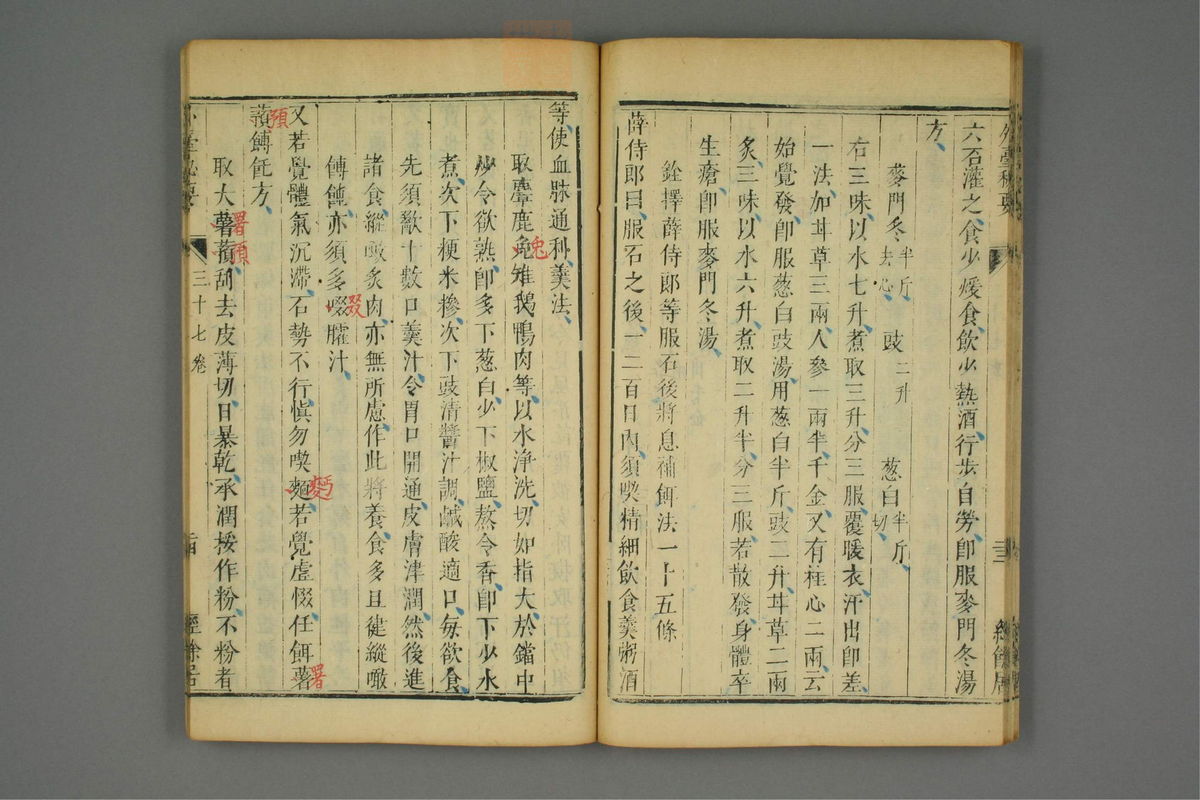 外臺秘要
六石灌之食少煖食飲少熱酒行步自勞卽服麥門冬湯
方
麥門冬半斤去心 豉二升 葱白半斤切
右三味以水七升煮取三升分三服覆暖衣汗出卽差
一法加甘草三兩人參一兩半千金又有桂心二兩云
始覺發卽服葱白豉湯用葱白半斤豉二升甘草二兩
炙三味以水六升煮取二升半分三服若散發身體卒
生瘡卽服麥門冬湯
銓擇薛侍郎等服石後將息補餌法一十五條
薛侍郎曰服石之後一二百日內須喫精細飲食羹粥酒
等使血脉通利羹法
取麞鹿兔雉鵝鴨肉等以水淨洗切如指大於鐺中
兔
炒令欲熟卽多下葱白少下椒鹽熬令香卽下少水
煮次下粳米糝次下豉清醬汁調鹹酸適口每欲食
先須歠十數口羹汁令胃口開通皮膚津潤然後進
諸食縱噉炙肉亦無所慮作此將養食多且徤縱噉
餺飥亦須多啜臛汁
叕
又若覺體氣沉滯石勢不行愼勿喫麵若覺虛惙任餌薯
麥丏
署
蕷餺飥方
預
取大薯蕷刮去皮薄切日暴乾承潤挼作粉不粉者
署預
外臺秘要
三十七卷
二四
經餘居